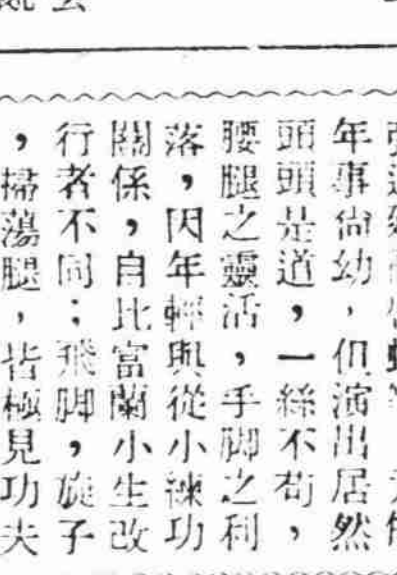 年事尙幼，但演出居然
頭頭是道，一絲不苟，
腰腿之靈活，手脚之利
落，因年輕與從小練功
關係，自比富蘭小生改
行者不同；飛脚，旋子
，掃蕩腿，皆極見功夫